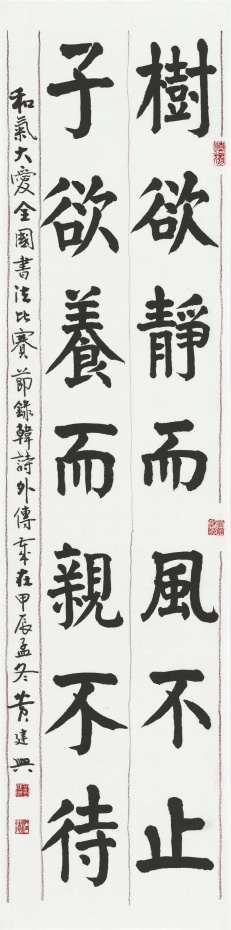 樹欲靜而風不止
子欲養而親不待
和氣大愛全國書法比賽節錄韓詩外傳歲在甲辰孟冬黃建興